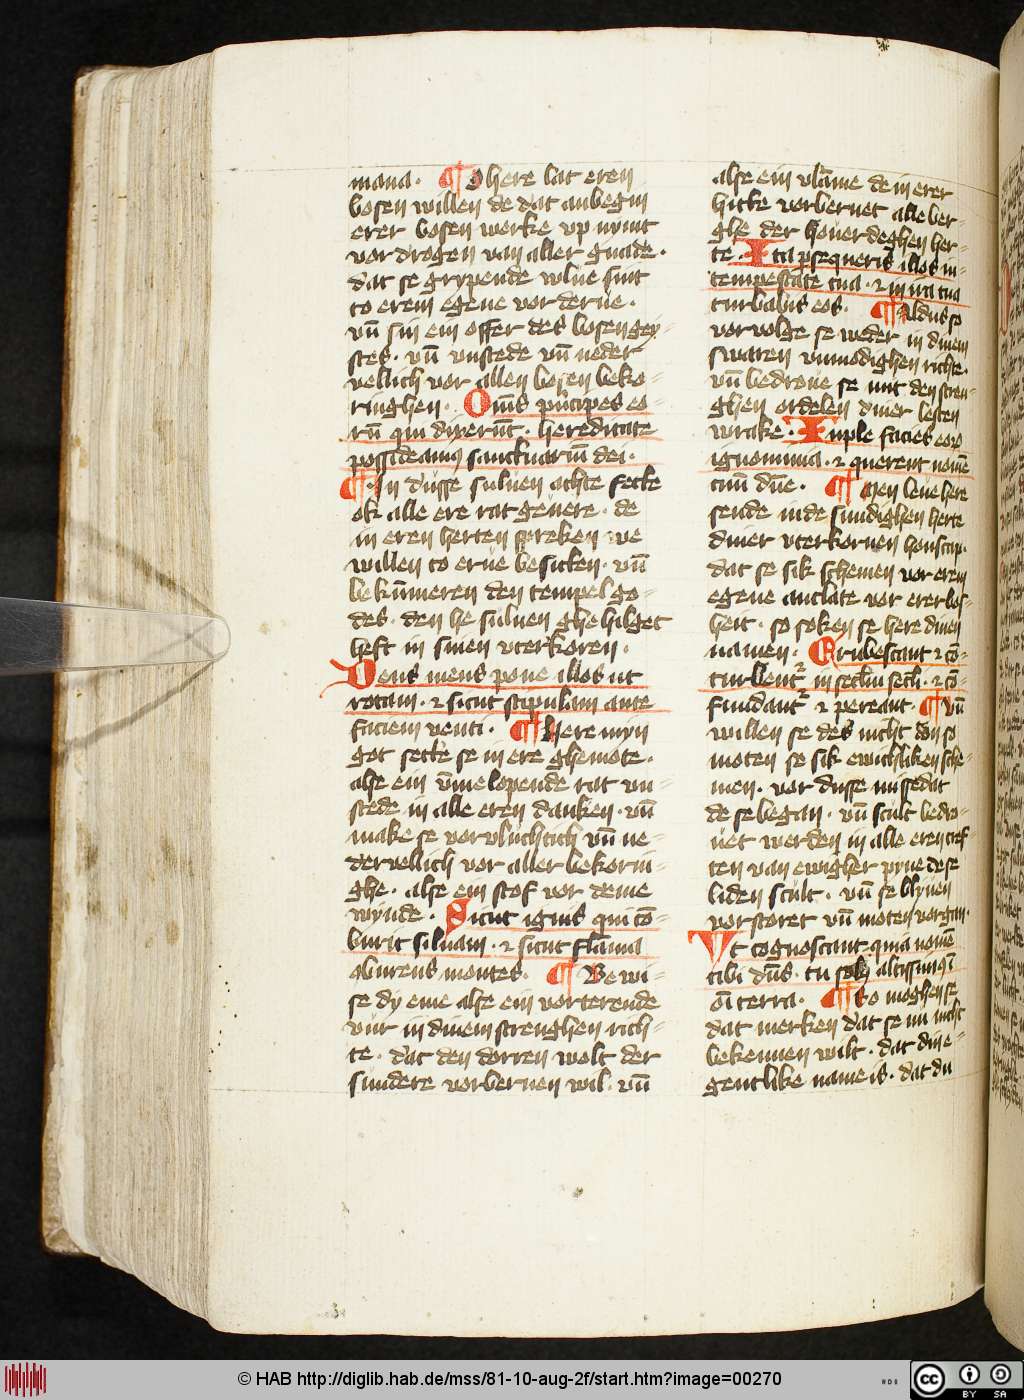 mana. ¶ O here lat eren
bosen willen de dat anbegin
erer bosen werke vp nymt
vordrogen van aller gnade.
dat se grypende wlue sint
to erem egene vorderue.
vn̄ sin ein offer des bosen gey-
stes. vn̄ vnstede vn̄ neder
vellich vor allen bosen beko-
ringhen. Om̄s prīcipes eo-
rū qui dixerūt. hereditate
possideamꝰ sanctuariū dei.
¶ In dusse suluen achte secke
ok alle ere ratgeuere. de
in eren herten spreken we
willen to erue besitten. vn̄
bekūmeren den tempel go-
des. den he suluen ghehilget
heft in sinen vterkoren.
Deus meus pone illos ut
rotam. ⁊ sicut stipulam ante
faciem venti. ¶ Here myn
got sette se in ere ghemote.
alse ein v̄melopende rat vn-
stede in alle eren danken. vn̄
make se vorvluchtich vn̄ ne-
dervellich vor aller bekorin-
ghe. alse ein stof vor deme
wynde. Sicut ignis qui cō-
burit siluam. ⁊ sicut flāma
aburens montes. ¶ Bewi-
se dy eme alse ein vorterende
vur in dinem strenghen rich-
te. dat den dorren wolt der
sundere vorbernen wil. vn̄
alse ein vlāme de in erer
hitte vorbernet alle ber-
ghe der houerdeghen her-
te. Ita ꝑsequeris illos in
tempestate tua. ⁊ in ira tua
turbabis eos. ¶ Aldus so
vorvolge se weder in dinem
swaren vnmodighen richte.
vn̄ bedroue se mit den stren-
ghen ordelen diner lesten
wrake. Imple facies eoꝝ
ignominia. ⁊ querent nomē
tuū dn̄e. ¶ Myn leue here
sende in de sundighen herte
diner vterkornen honscap.
dat se sik schemen vor erem
egene antlate vor erer bos-
heit. so soken se here dinen
namen. Erubescant ⁊ cō-
turbent in sećlm sećli. ⁊ cō-
fundant ⁊ pereant. ¶ vn̄
willen se des nicht don so
moten se sik ewichliken sche-
men. vor dusse missedat
de se began. vn̄ scult bedro-
uet werden in alle eren cref
ten van ewigher pyne de se
liden scult. vn̄ se blyuen
vorstoret vn̄ moten vorgan.
Ut cognoscant quia nomē
tibi dn̄s. tu solꝰ altissimꝰ ī
oī terra. ¶ So moghen se
dat merken dat se nu nicht
bekennen wilt. dat dine-
gentlike name is. dat du
© HAB http://diglib.hab.de/mss/81-10-aug-2f/start.htm?image=00270
HAB
cc BY SA